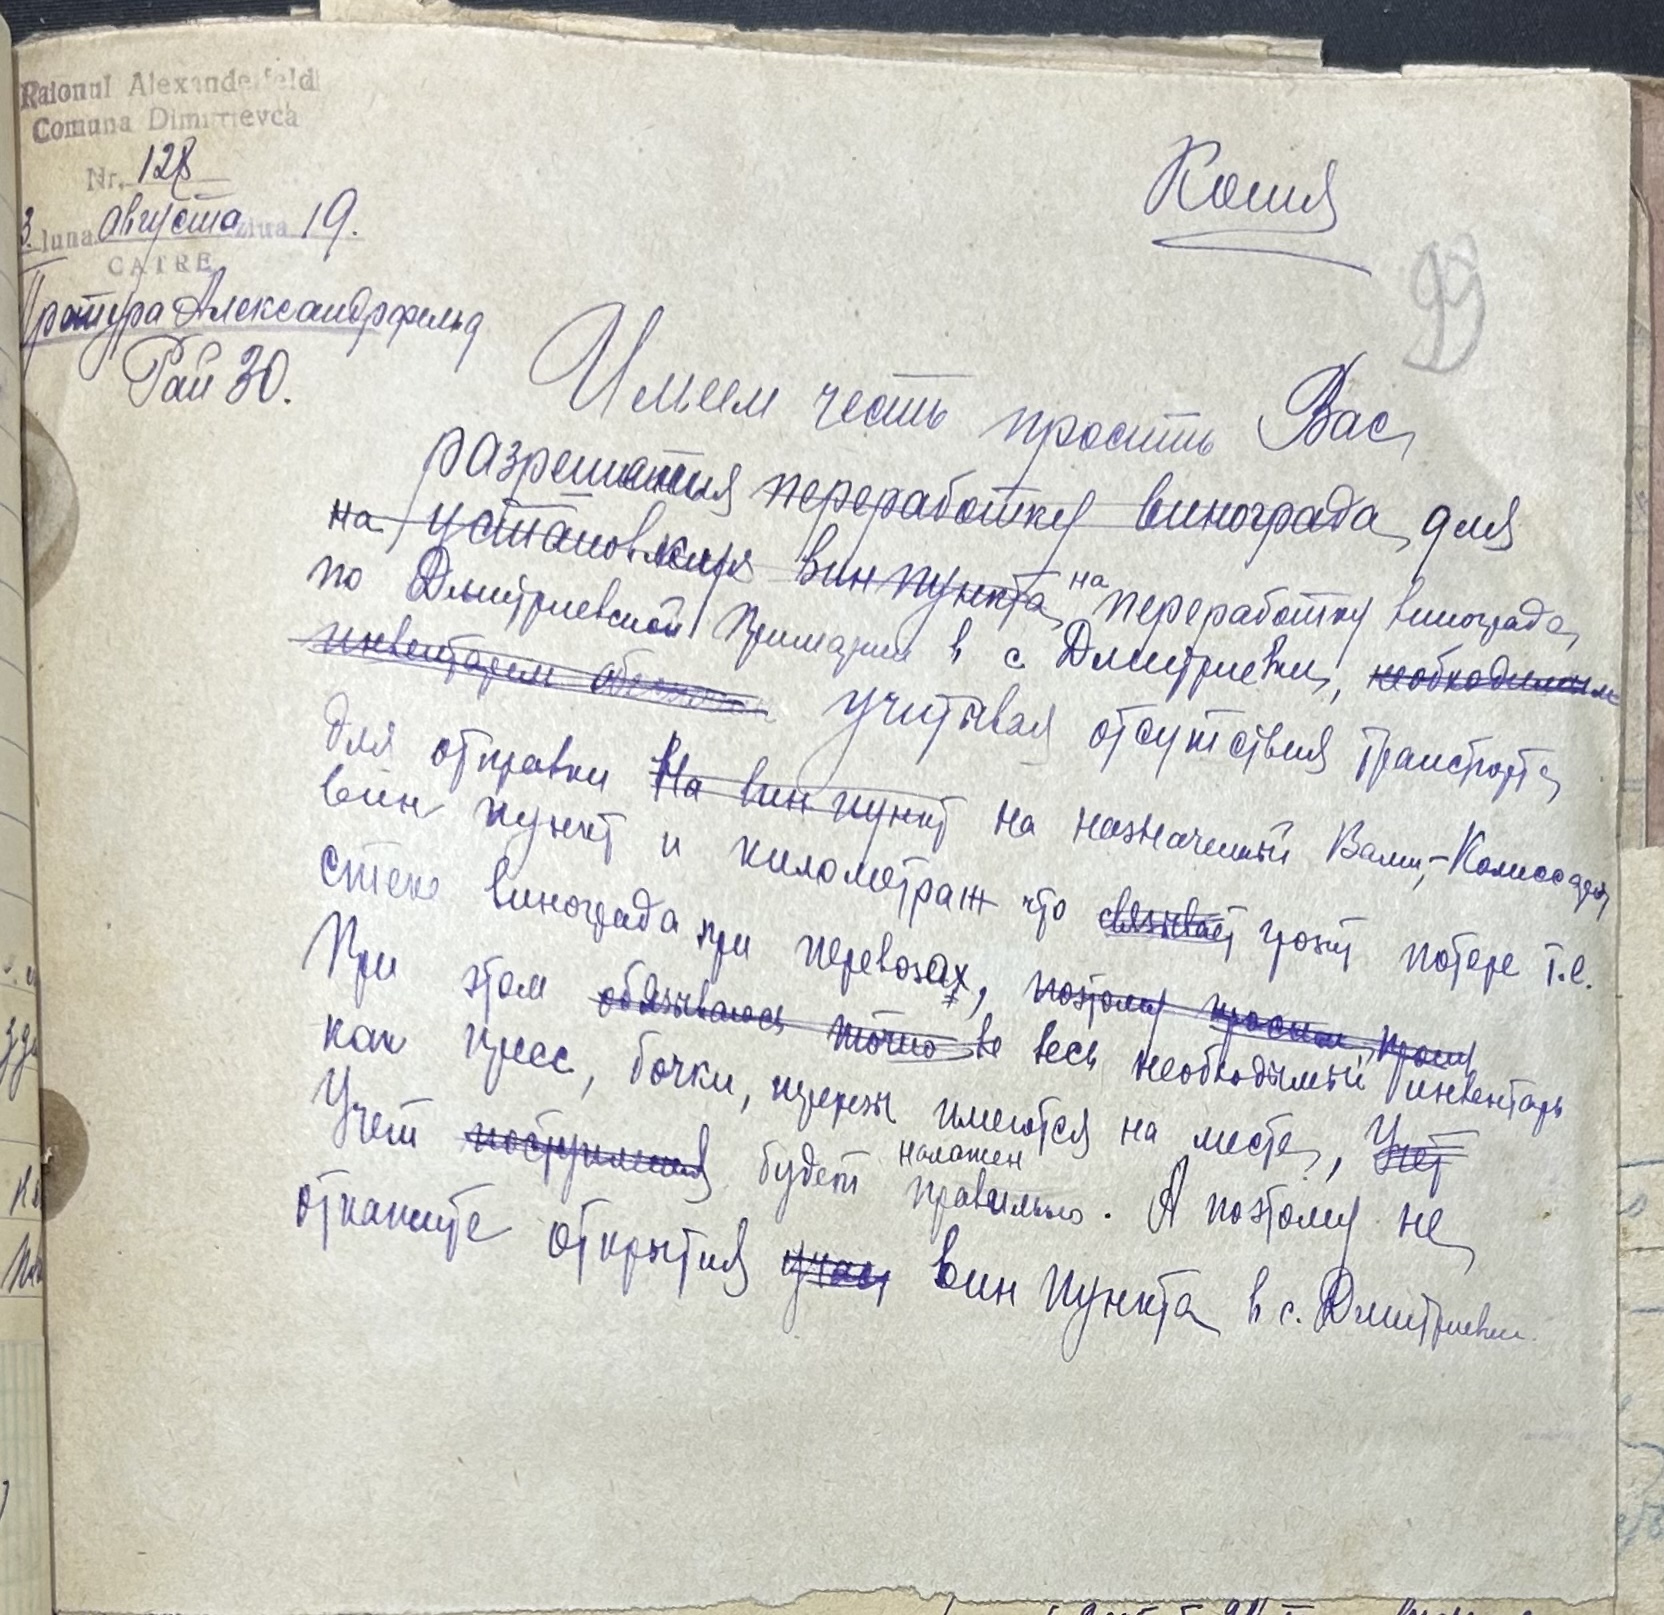 Raionul Alexanderfeld
Comuna Dimitrievca
Nr. 128
3. luna августа ziua 19.
CATRE
Претура Александрфельд
Рай ЗО.
Копия
99
Имеем честь просить Вас
разрешения переработку винограда для
на установки вин пункта на переработку винограда
по Дмитриевской Примарии в с Дмитриевки, необходимым
инвентарем
учитывая отсутствия транспорта
для отправки На вин пункт на назначенный Вами,
вин пункт и километраж что связывает грозит потере т.е.
стеке винограда при перевозах, поэтому просим, прошу
При этом обязываюсь точно во весь необходимый инвентарь
как пресс, бочки, имеются на месте, Учет
Учет поступления будет налажен правильно. А поэтому не
откажите открытия вин пункта в с. Дмитриевки.